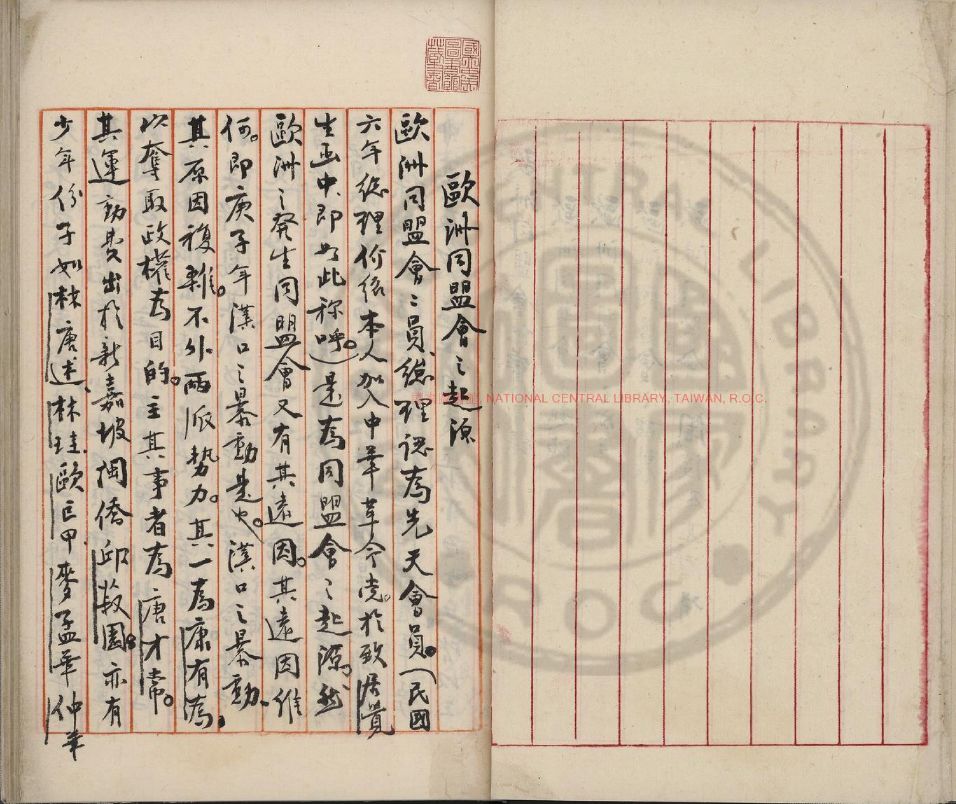 歐洲同盟會之起源
歐洲同盟會々員、總理認為先天會員。(民國
六年總理介紹本人加入中華革命党。於致居覺
生函中、即如此称呼)。是為同盟會之起源。然
歐洲之發生同盟會又有其遠因。其遠因維
何。即庚子年漢口之暴動是也。漢口之暴動、
其原因複雜。不外兩派勢力。其一為康有為、
以奪取政權為目的。主其事者為唐才常。
其運動費出於新嘉坡閩僑邱菽園。亦有
少年份子如林唐述、林珪歐巨甲、麥孟華仲華
NATIONAL CENTRAL LIBRARY, TAIWAN, R.O.C.
CENTRAL LIBRARY
R.O.C.